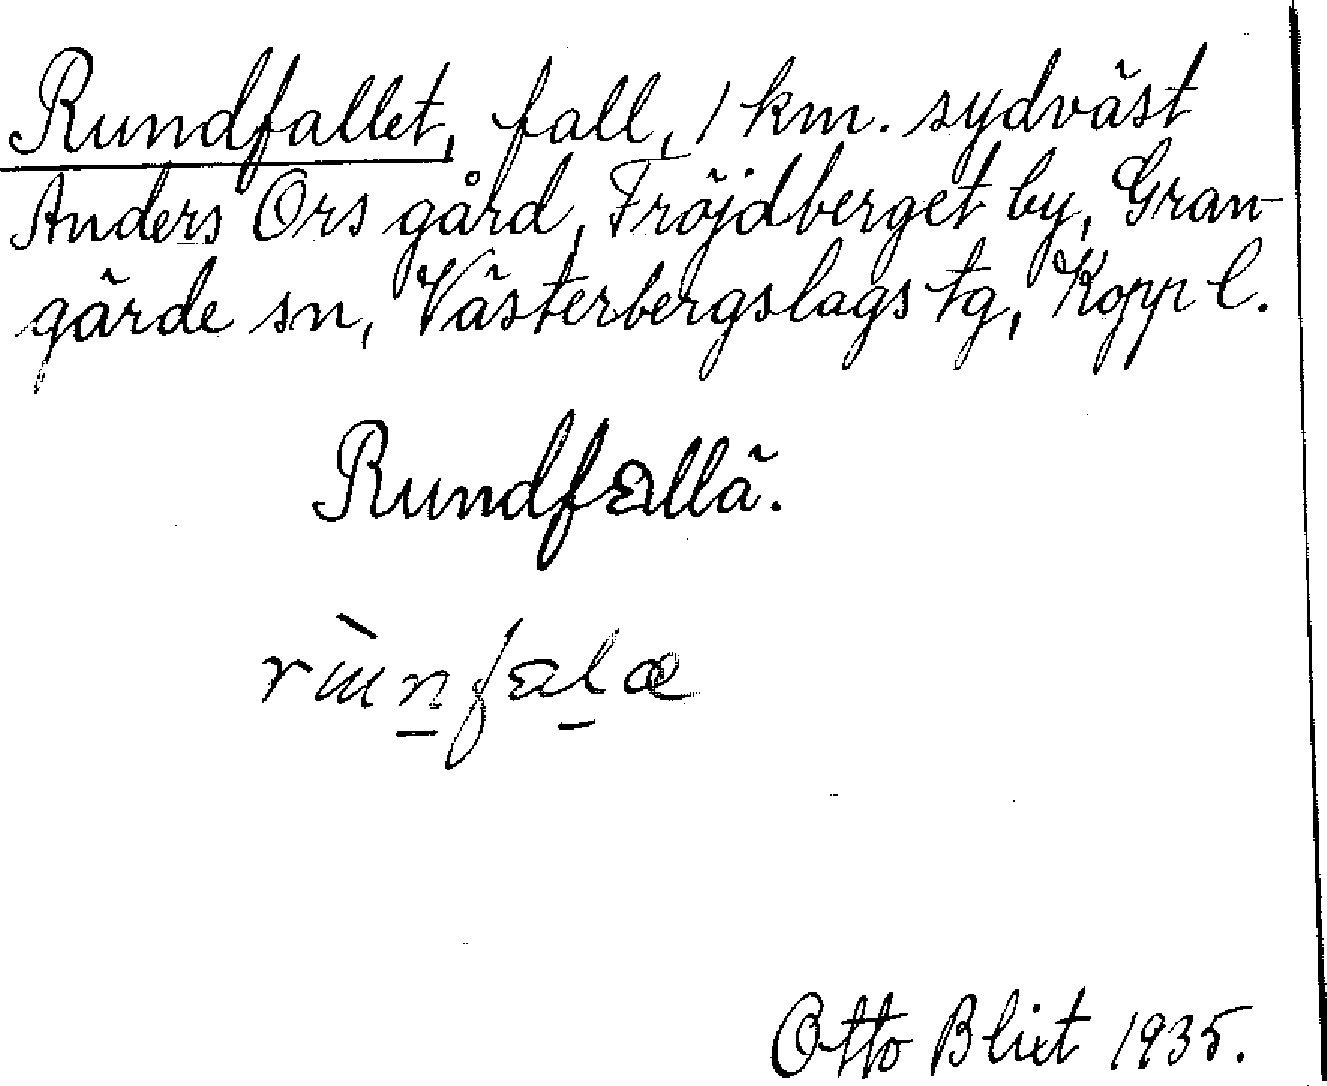 Rundfallet, fall, 1 km. sydväst
Anders Ors gård, Fröjdberget by, Gran-
gärde sn, Västerbergslags tg, Kopp l.
Rundfallä.
Otto Blixt 1935.